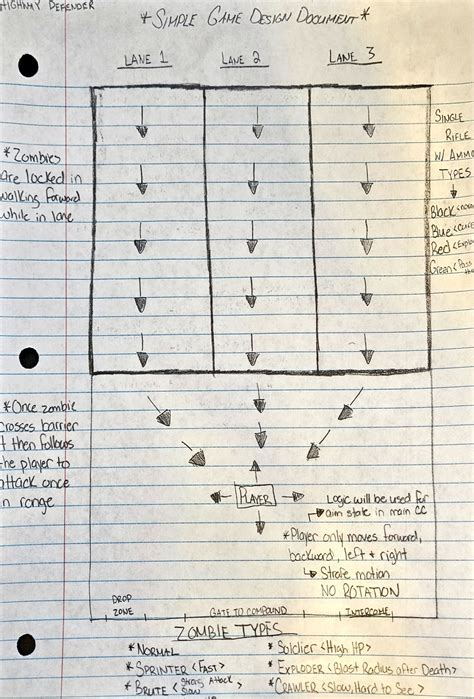 HIGHWAY DEFENDER
* SIMPLE GAME DESIGN DOCUMENT *
LANE 1
LANE 2
LANE 3
* Zombies
are locked in
walking forward
while in lane
SINGLE
RIFLE
W/ AMMO
TYPES
Black
Blue
Red
Green
* Once zombie
crosses barrier
it then follows
the player to
attack once
in range
PLAYER
Logic will be used for
aim state in main CC
* Player only moves forward,
backward, left + right
Strafe motion
NO ROTATION
DROP
ZONE
GATE TO COMPOUND
INTERCOME
ZOMBIE TYPES
* NORMAL
* SPRINTER <FAST>
* BRUTE <Strong Attack
Slow
* Soldier <High HP>
* EXPLODER <Blast Radius after Death>
* CRAWLER <Slow, Hard to See>